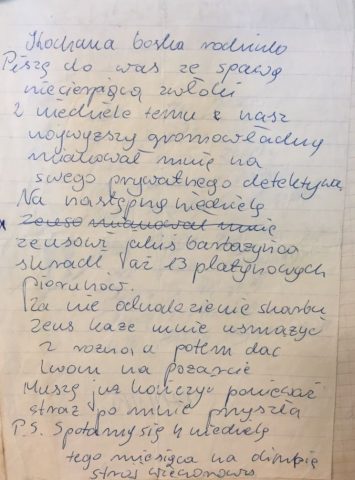 Kochana boska rodzinko
Piszę do was ze sprawą
niecierpiącą zwłoki
2 niedziele temu nasz
najwyższy gromowładny
mianował mnie na
swego prywatnego detektywa
Na następną niedzielę
zeusowi jakiś barbażyńca
skradł aż 13 platynowych
piorunów.
Za nie odnalezienie skarbu
Zeus każe mnie usmażyć
z rożna, a potem dać
lwom na pożarcie
Muszę już kończyć ponieważ
straż po mnie przyszła
P.S. Spotamy się 4 niedzielę
tego miesiąca na olimpie
strój wieczorowy